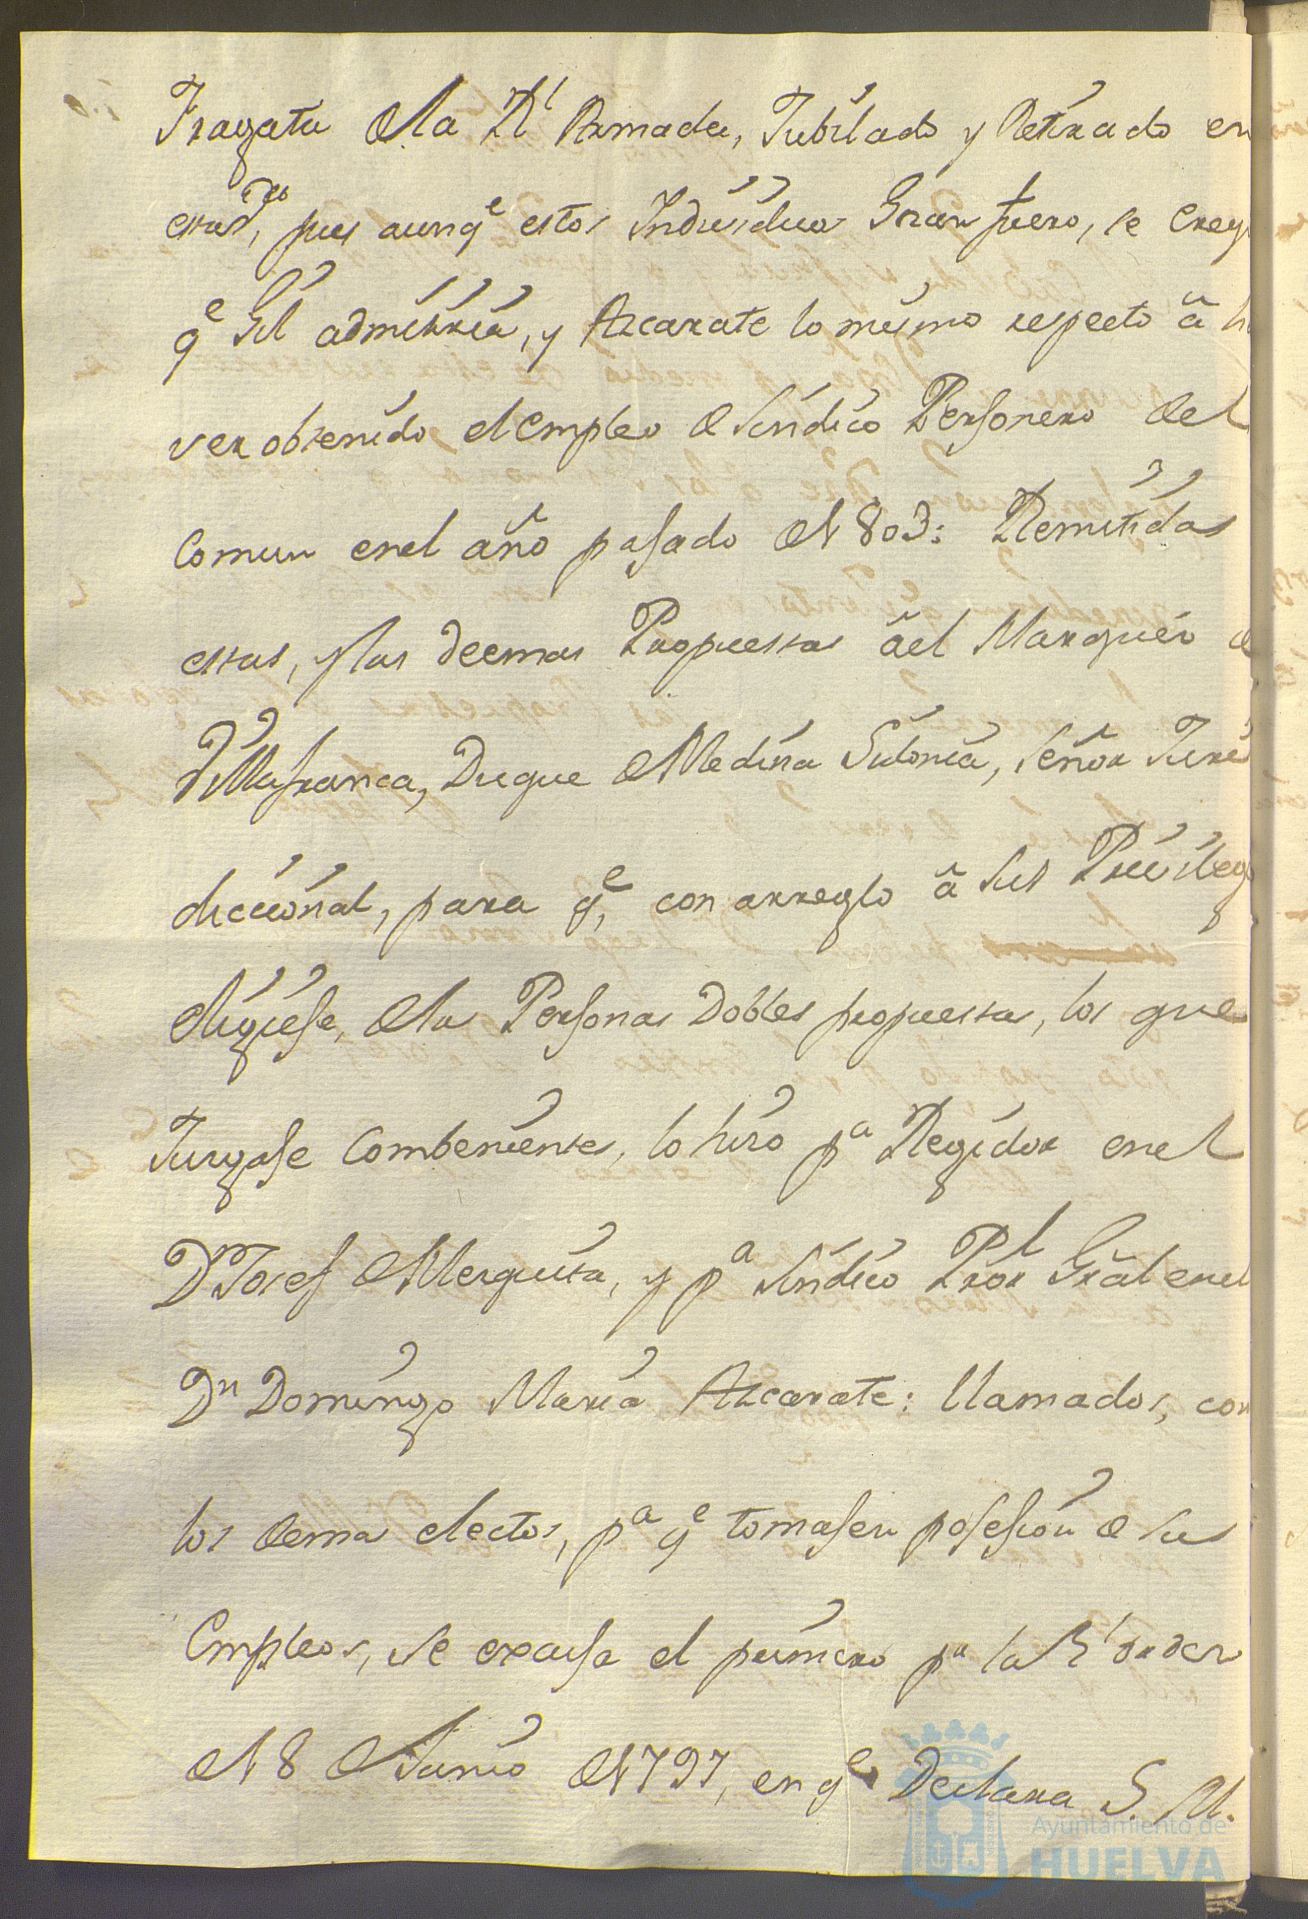 Fragata de la Rl Armada, Jubilado y Retirado en
pues aunqe estos Individuos Gozan fuero, se creyo
qe Gil admitiria, y Azcarate lo mismo respecto â ha
ver obtenido el empleo de Sindico Personero del
Comun en el año pasado de 1803: Remitidas
estas, y las deemas Propuestas âel Marques de
Villafranca, Duque de Medina Sidonia, Señor Juris
diccional, para qe, con arreglo â sus Privileg
eligiese, de las Personas Dobles propuestas, los que
Jusgase Combenientes, lo hiso pa Regidor en el
Dn Josef de Mesquita, y pa Sindico Pror Gral en el
Dn Domingo Maria Azcarate: llamados, con
los demas electos, pa qe tomasen posesion de sus
Empleos, se excusa el primero pr la Rl orden
de 18 de Junio de 1797, en qe Declara S. M.
Ayuntamiento de
HUELVA